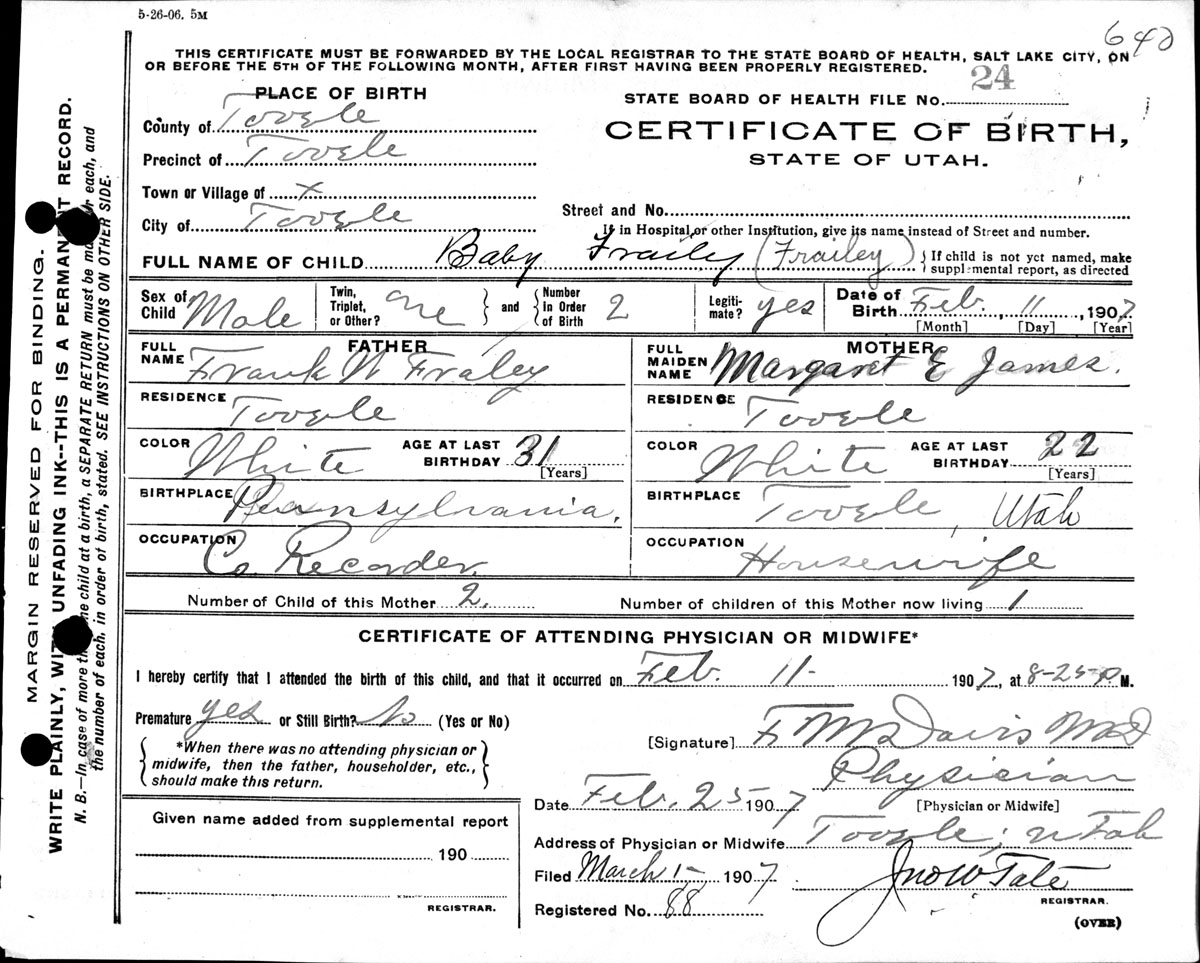 5-26-06. 5M
640
THIS CERTIFICATE MUST BE FORWARDED BY THE LOCAL REGISTRAR TO THE STATE BOARD OF HEALTH, SALT LAKE CITY, ON
OR BEFORE THE 5TH OF THE FOLLOWING MONTH, AFTER FIRST HAVING BEEN PROPERLY REGISTERED.
PLACE OF BIRTH
County of Tooele
Precinct of Tooele
Town or Village of x
City of Tooele
STATE BOARD OF HEALTH FILE No. 24
CERTIFICATE OF BIRTH,
STATE OF UTAH.
Street and No.
If in Hospital or other Institution, give its name instead of Street and number.
FULL NAME OF CHILD Baby Frailey (Frailey) { If child is not yet named, make supplemental report, as directed
Sex of Child Male Twin, Triplet, or Other? one } and { Number in Order of Birth 2 Legitimate? yes Date of Birth Feb. 11, 1907
[Month] [Day] [Year]
FATHER
FULL NAME Frank W Fraley
RESIDENCE Tooele
COLOR White AGE AT LAST BIRTHDAY 31
[Years]
BIRTHPLACE Pennsylvania,
OCCUPATION Co Recorder.
MOTHER
FULL MAIDEN NAME Margaret E James.
RESIDENCE Tooele
COLOR White AGE AT LAST BIRTHDAY 22
[Years]
BIRTHPLACE Tooele, Utah
OCCUPATION Housewife
Number of Child of this Mother 2. Number of children of this Mother now living 1
CERTIFICATE OF ATTENDING PHYSICIAN OR MIDWIFE*
I hereby certify that I attended the birth of this child, and that it occurred on Feb. 11- 1907, at 8-25-P M.
Premature yes or Still Birth? No (Yes or No)
*When there was no attending physician or
midwife, then the father, householder, etc.,
should make this return.
[Signature] F M Davis MD
Physician
[Physician or Midwife]
Date Feb. 25 1907
Address of Physician or Midwife Tooele, Utah
Filed March 1- 1907 Jno W Tate
REGISTRAR.
Registered No. 88
(OVER)
Given name added from supplemental report
190
REGISTRAR.
MARGIN RESERVED FOR BINDING.
WRITE PLAINLY, WITH UNFADING INK--THIS IS A PERMANENT RECORD.
N. B.—In case of more than one child at a birth, a SEPARATE RETURN must be made for each, and
the number of each, in order of birth, stated. SEE INSTRUCTIONS ON OTHER SIDE.